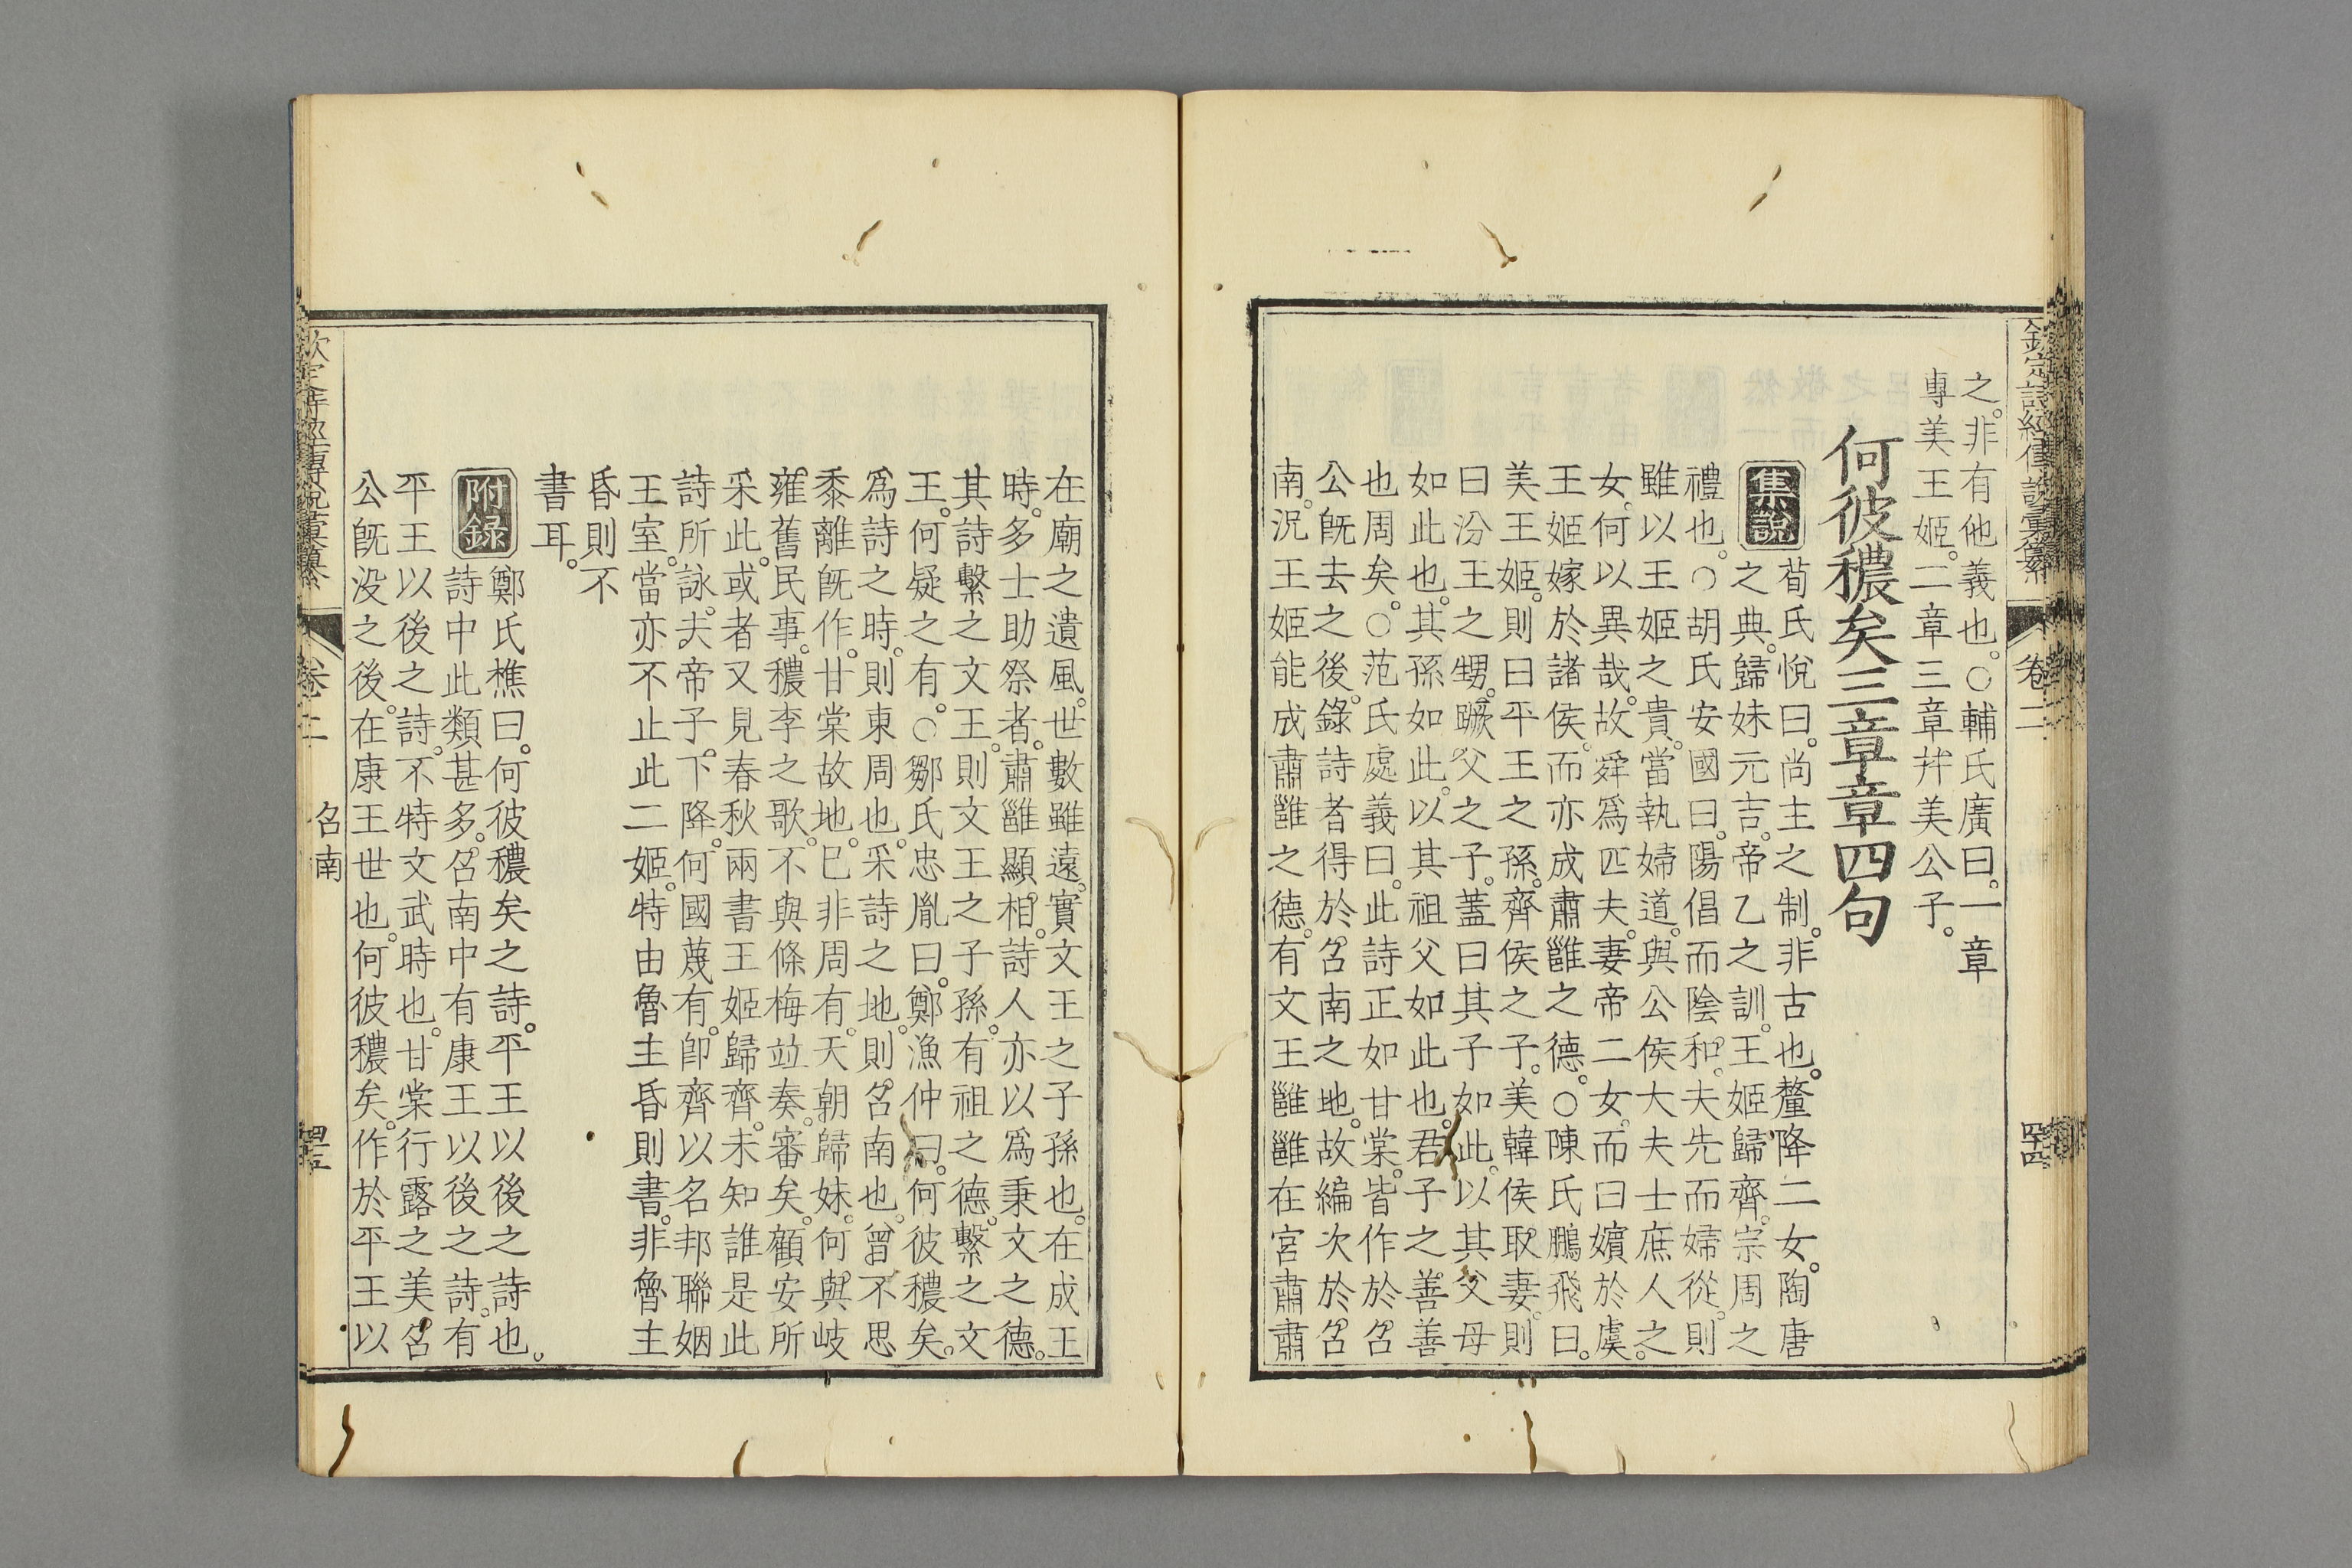 欽定詩經傳說彙纂 卷二
之。非有他義也。○輔氏廣曰。一章
專美王姬。二章三章幷美公子。
何彼穠矣三章章四句
集說 荀氏悅曰。尚主之制。非古也。釐降二女。陶唐
之典。歸妹元吉。帝乙之訓。王姬歸齊。宗周之
禮也。○胡氏安國曰。陽倡而陰和。夫先而婦從。則
雖以王姬之貴。當執婦道。與公侯大夫士庶人之
女。何以異哉。故舜爲匹夫。妻帝二女。而曰嬪於虞。
王姬嫁於諸侯。而亦成肅雝之德。○陳氏鵬飛曰。
美王姬。則曰平王之孫。齊侯之子。美韓侯取妻。則
曰汾王之甥。蹶父之子。蓋曰其子如此。以其父母
如此也。其孫如此。以其祖父如此也。君子之善善
也周矣。○范氏處義曰。此詩正如甘棠。皆作於召
公旣去之後。錄詩者得於召南之地。故編次於召
南。況王姬能成肅雝之德。有文王雝雝在宮肅肅
四十四
在廟之遺風。世數雖遠。實文王之子孫也。在成王
時。多士助祭者。肅雝顯相。詩人亦以爲秉文之德。
其詩繫之文王。則文王之子孫。有祖之德。繫之文
王。何疑之有。○鄒氏忠胤曰。鄭漁仲曰。何彼穠矣。
爲詩之時。則東周也。采詩之地。則召南也。曾不思
黍離旣作。甘棠故地。已非周有。天朝歸妹。何與岐
雍舊民事。穠李之歌。不與條梅竝奏。審矣。顧安所
采此。或者又見春秋兩書王姬歸齊。未知誰是此
詩所詠。夫帝子下降。何國蔑有。卽齊以名邦聯姻
王室。當亦不止此二姬。特由魯主昏則書。非魯主
昏則不
書耳。
附錄 鄭氏樵曰。何彼穠矣之詩。平王以後之詩也。
詩中此類甚多。召南中有康王以後之詩。有
平王以後之詩。不特文武時也。甘棠行露之美召
公旣没之後。在康王世也。何彼穠矣。作於平王以
欽定詩經傳說彙纂 卷二 召南 四十五